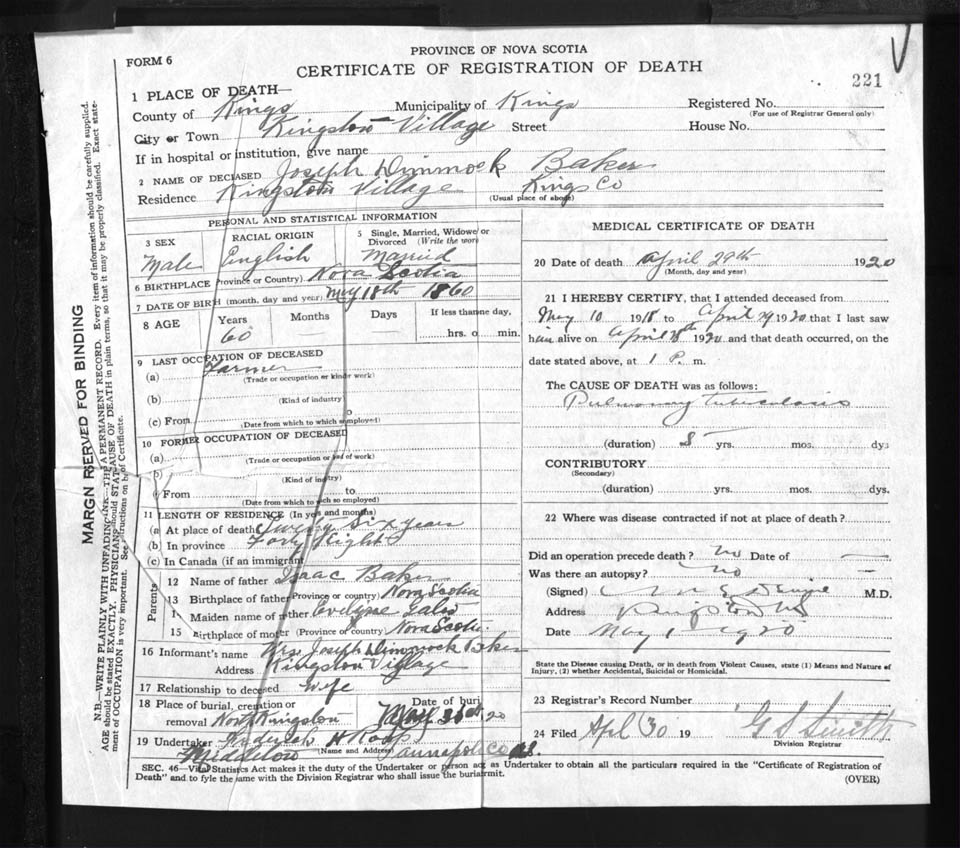 FORM 6
PROVINCE OF NOVA SCOTIA
CERTIFICATE OF REGISTRATION OF DEATH
221
1 PLACE OF DEATH—
County of Kings Municipality of Kings Registered No.
(For use of Registrar General only)
City or Town Kingston Village Street House No.
If in hospital or institution, give name
2 NAME OF DECEASED Joseph Dimmock Baker
Residence Kingston Village Kings Co
(Usual place of abode)
PERSONAL AND STATISTICAL INFORMATION
3 SEX RACIAL ORIGIN 5 Single, Married, Widowe or
Divorced (Write the wor
Male English Married
6 BIRTHPLACE Province or Country) Nova Scotia
7 DATE OF BIRTH (month, day and year) May 18th 1860
8 AGE Years Months Days If less thanne day,
60 hrs. o min.
9 LAST OCCUPATION OF DECEASED
(a) Farmer
(Trade or occupation or kind r work)
(b)
(Kind of industry)
(c) From o
(Date from which to which so employed)
10 FORMER OCCUPATION OF DECEASED
(a)
(Trade or occupation or kind of work)
b)
(Kind of industry)
From to
(Date from which to which so employed)
11 LENGTH OF RESIDENCE (In yes and months)
(a At place of death Twenty Six years
(b) In province Forty Eight
(c) In Canada (if an immigrant
Parents
12 Name of father Isaac Baker
13 Birthplace of father Province or country) Nova Scotia
1 Maiden name of mther
15 Birthplace of moter (Province or country Nova Scotia
16 Informant's name Mrs. Joseph Dimmock Baker
Address Kingston Village
17 Relationship to decesed wife
18 Place of burial, cremtion or Date of buri
removal North Kingston May 20
19 Undertaker H
(Name and Address)
Middleton Annapolis Co
SEC. 46—Vital Statistics Act makes it the duty of the Undertaker or person act as Undertaker to obtain all the particulars required in the "Certificate of Registration of
Death" and to fyle the same with the Division Registrar who shall issue the burial rmit.
(OVER)
MEDICAL CERTIFICATE OF DEATH
20 Date of death April 29th 1920
(Month, day and year)
21 I HEREBY CERTIFY, that I attended deceased from
May 10 1918 to April 29 1920 that I last saw
him alive on April 28th 1920 and that death occurred, on
the date stated above, at 1 P. m.
The CAUSE OF DEATH was as follows:
Pulmonary tuberculosis
(duration) yrs. mos. dys
CONTRIBUTORY
(Secondary)
(duration) yrs. mos. dys.
22 Where was disease contracted if not at place of death?
Did an operation precede death? No Date of —
Was there an autopsy? No —
(Signed) M.D.
Address Kingston NS
Date May 1 1920
State the Disease causing Death, or in death from Violent Causes, state (1) Means and Nature of
Injury, (2) whether Accidental, Suicidal or Homicidal.
23 Registrar's Record Number
24 Filed Apl 30 19 G S Smith
Division Registrar
MARGN RERVED FOR BINDING